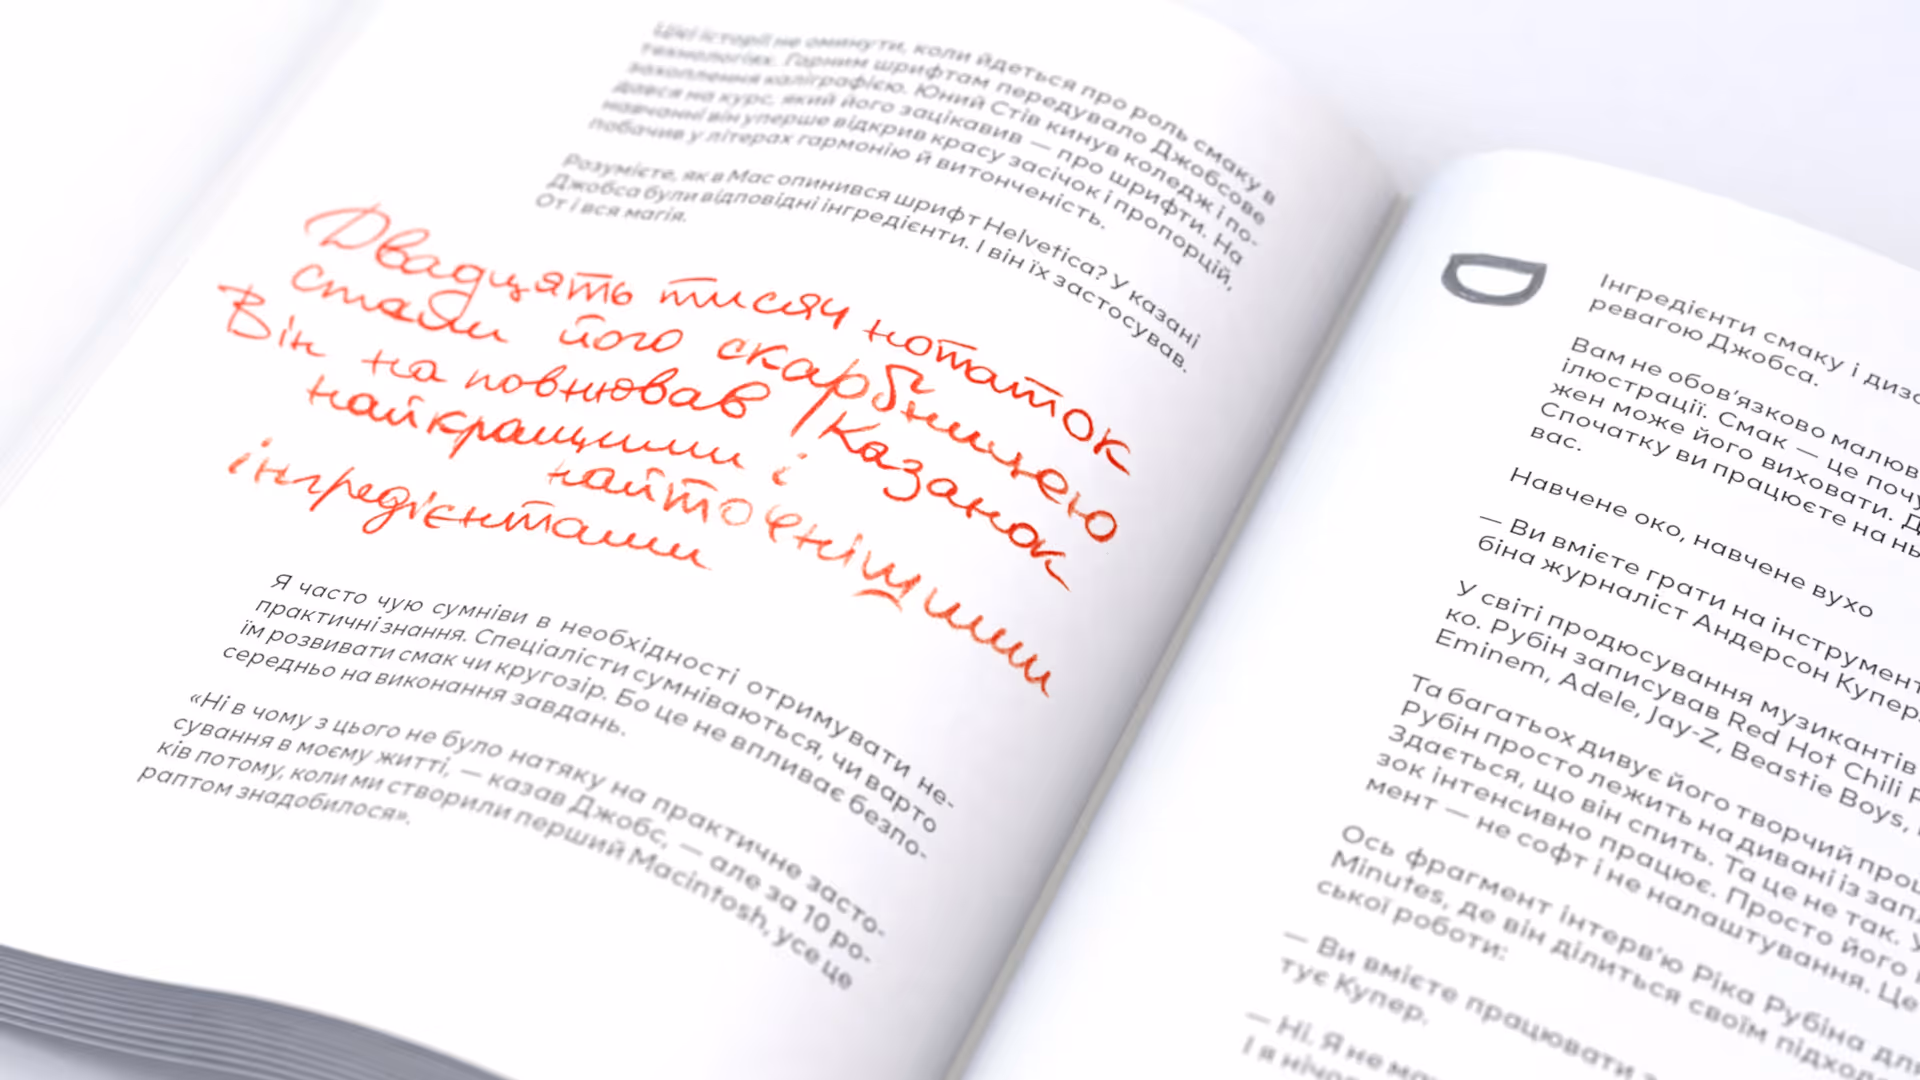 Цієї історії не оминути, коли йдеться про роль смаку в
технологіях. Гарним шрифтам передувало Джобсове
захоплення каліграфією. Юний Стів кинув коледж і по-
дався на курс, який його зацікавив — про шрифти. На
навчанні він уперше відкрив красу засічок і пропорцій,
побачив у літерах гармонію й витонченість.
Розумієте, як в Mac опинився шрифт Helvetica? У казані
Джобса були відповідні інгредієнти. І він їх застосував.
От і вся магія.
Двадцять тисяч нотаток
стали його скарбницею
Він наповнював казанок
найкращими і
найточнішими
інгредієнтами
Я часто чую сумніви в необхідності отримувати не-
практичні знання. Спеціалісти сумніваються, чи варто
їм розвивати смак чи кругозір. Бо це не впливає безпо-
середньо на виконання завдань.
«Ні в чому з цього не було натяку на практичне засто-
сування в моєму житті, — казав Джобс, — але за 10 ро-
ків потому, коли ми створили перший Macintosh, усе це
раптом знадобилося».
Інгредієнти смаку і
ревагою Джобса.
Вам не обов'язково
ілюстрації. Смак — це
жен може його виховати.
Спочатку ви працюєте на
вас.
Навчене око, навчене вухо
— Ви вмієте грати на
біна журналіст Андерсон Купер.
У світі продюсування музикантів
ко. Рубін записував Red Hot Chili
Eminem, Adele, Jay-Z, Beastie Boys,
Та багатьох дивує його творчий
Рубін просто лежить на дивані із
Здається, що він спить. Та це не так.
зок інтенсивно працює. Просто його
мент — не софт і не налаштування. Це
Ось фрагмент інтерв'ю Ріка Рубіна для
Minutes, де він ділиться своїм
ської роботи:
— Ви вмієте працювати з
тує Купер.
— Ні. Я не
І я